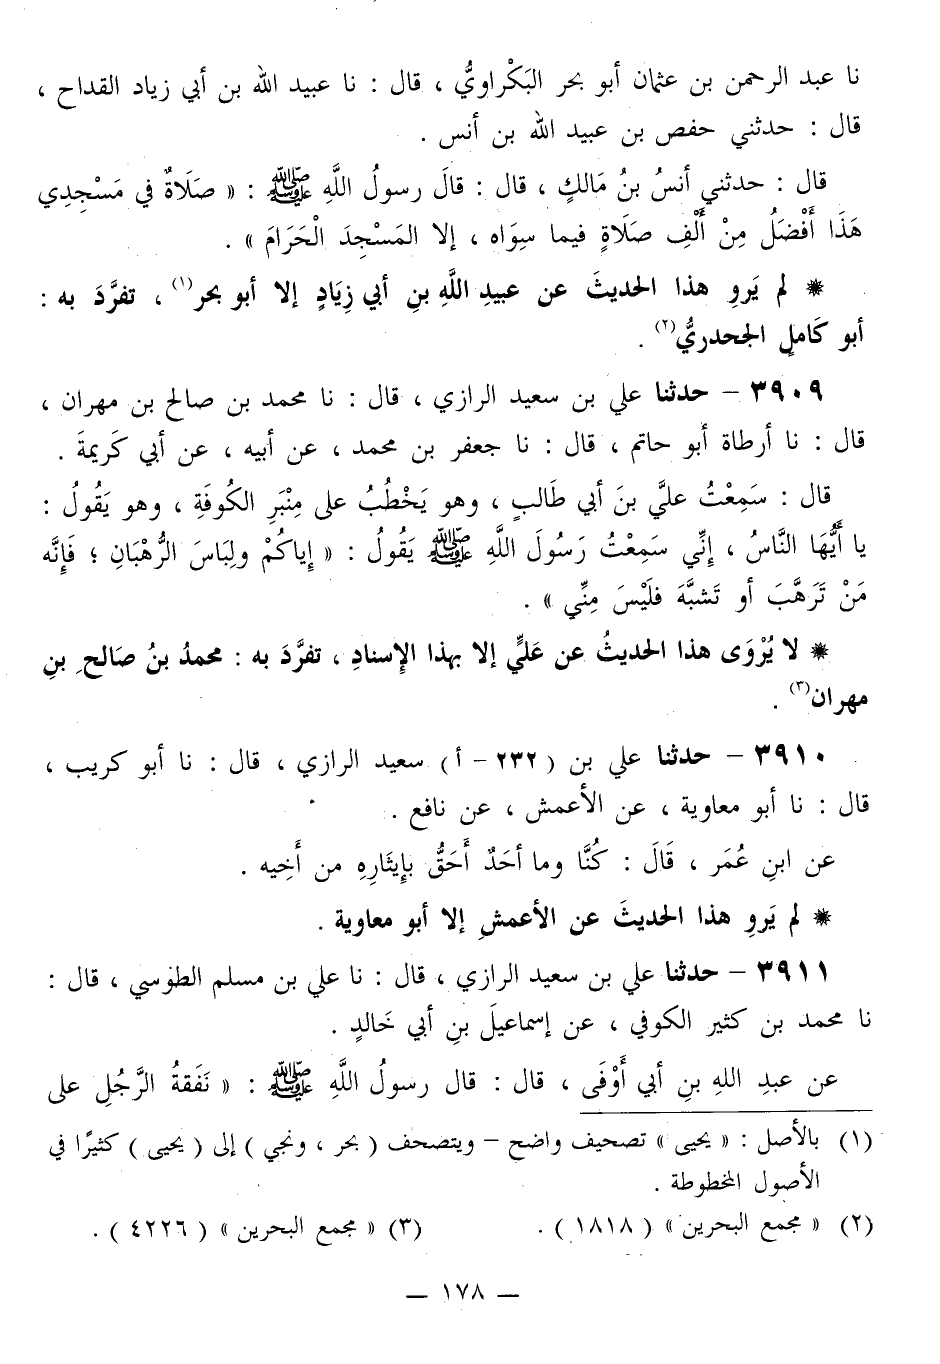 نا عبد الرحمن بن عثمان أبو بحر البَكْراويُّ ، قال : نا عبيد الله بن أبي زياد القداح ،
قال : حدثني حفص بن عبيد الله بن أنس .
قال : حدثني أنسُ بنُ مَالكٍ ، قال : قالَ رسولُ اللَّهِ ﷺ : « صَلَاةٌ في مَسْجِدِي
هَذَا أَفْضَلُ مِنْ أَلْفِ صَلَاةٍ فيما سِوَاه ، إلا المَسْجِدَ الْحَرَامَ » .
* لم يَروِ هذا الحديثَ عن عبيدِ اللَّهِ بنِ أبي زِيَادٍ إلا أبو بحر(١) ، تفرَّدَ به :
أبو كَاملٍ الجحدريُّ(٢) .
٣٩٠٩ - حدثنا علي بن سعيد الرازي ، قال : نا محمد بن صالح بن مهران ،
قال : نا أرطاة أبو حاتم ، قال : نا جعفر بن محمد ، عن أبيه ، عن أبي كَريمةَ .
قال : سَمِعْتُ عليَّ بنَ أبي طَالبٍ ، وهو يَخْطُبُ على مِنْبَرِ الكُوفَةِ ، وهو يَقُولُ :
يا أَيُّهَا النَّاسُ ، إِنِّي سَمِعْتُ رَسُولَ اللَّهِ ﷺ يَقُولُ : « إِياكُمْ ولِبَاسَ الرُّهْبَانِ ؛ فَإِنَّه
مَنْ تَرَهَّبَ أو تَشبَّهَ فلَيْسَ مِنِّي » .
* لا يُرْوَى هذا الحديثُ عن عَليٍّ إلا بهذا الإِسنادِ ، تفرَّدَ به : محمدُ بنُ صَالحِ بنِ
مهران(٣) .
٣٩١٠ - حدثنا علي بن ( ٢٣٢ - أ ) سعيد الرازي ، قال : نا أبو كريب ،
قال : نا أبو معاوية ، عن الأعمش ، عن نافع .
عن ابنِ عُمَر ، قَالَ : كُنَّا وما أحَدٌ أَحَقُّ بإِيثَارِهِ من أَخِيه .
* لم يَروِ هذا الحديثَ عن الأعمشِ إلا أبو معاوية .
٣٩١١ - حدثنا علي بن سعيد الرازي ، قال : نا علي بن مسلم الطوسي ، قال :
نا محمد بن كثير الكوفي ، عن إسماعيلَ بنِ أبي خَالدٍ .
عن عبدِ اللهِ بنِ أبي أَوْفَى ، قال : قال رسولُ اللَّهِ ﷺ : « نَفَقةُ الرَّجُلِ على
(١) بالأصل : « يحيى » تصحيف واضح - ويتصحف ( بحر ، ونجي ) إلى ( يحيى ) كثيرًا في
الأصول المخطوطة .
(٢) « مجمع البحرين » ( ١٨١٨ ) . (٣) « مجمع البحرين » ( ٤٢٢٦ ) .
— ١٧٨ —